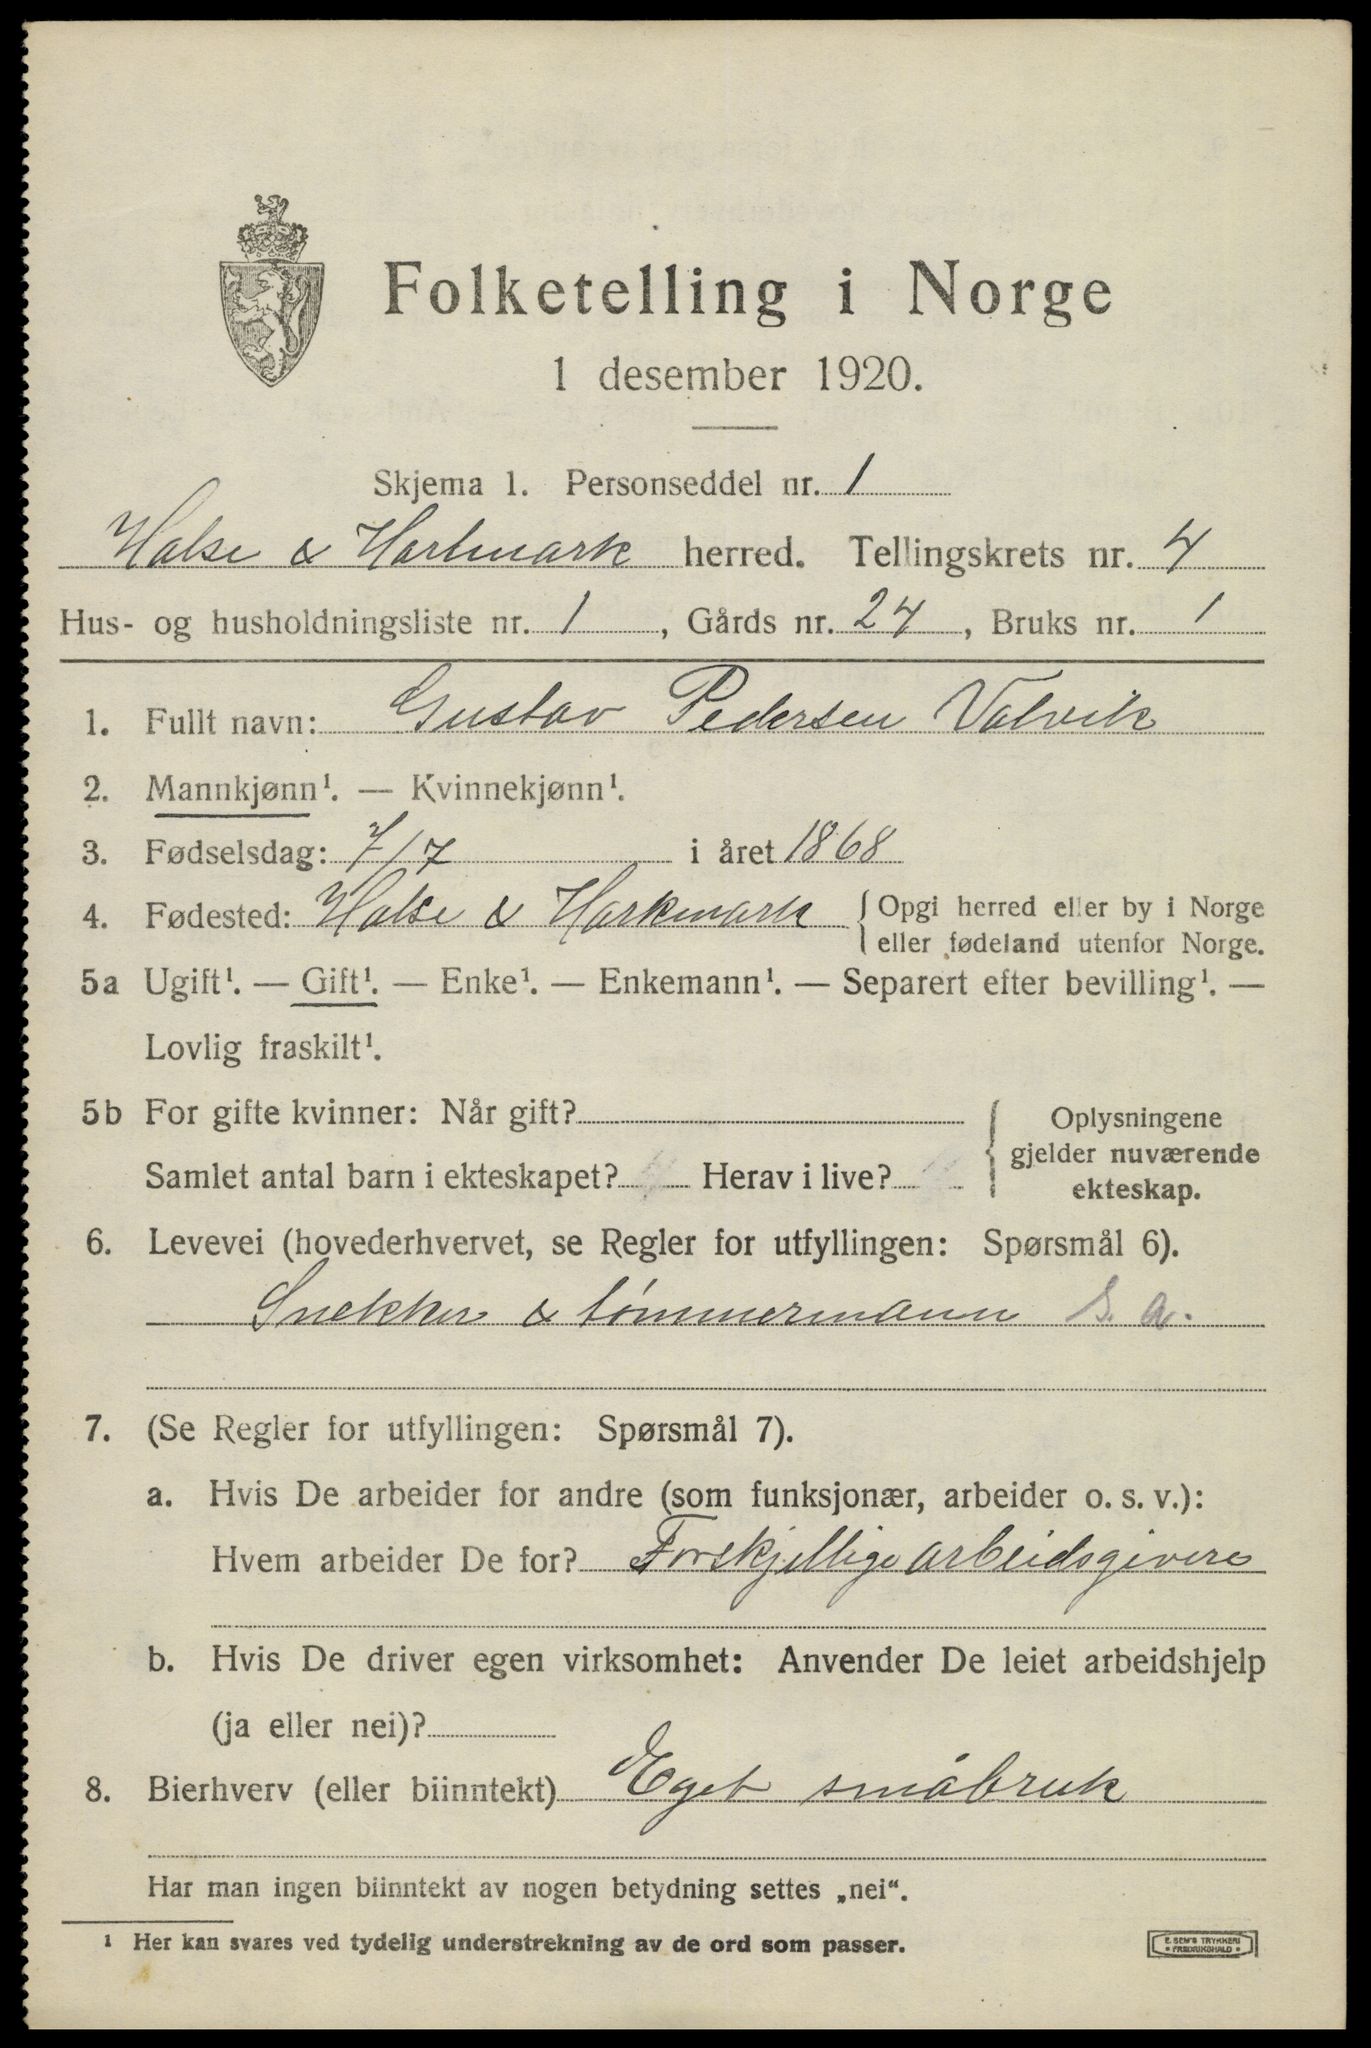 Folketelling i Norge
1 desember 1920.
Skjema 1. Personseddel nr. 1
Halse & Harkmark herred. Tellingskrets nr. 4
Hus- og husholdningsliste nr. 1, Gårds nr. 24, Bruks nr. 1
1. Fullt navn: Gustav Pedersen Valvik
2. Mannkjønn¹. — Kvinnekjønn¹.
3. Fødselsdag: 7/7 i året 1868
4. Fødested: Halse & Harkmark { Opgi herred eller by i Norge
eller fødeland utenfor Norge.
5a Ugift¹. — Gift¹. — Enke¹. — Enkemann¹. — Separert efter bevilling¹. —
Lovlig fraskilt¹.
5b For gifte kvinner: Når gift?
Samlet antal barn i ekteskapet? Herav i live?
{ Oplysningene
gjelder nuværende
ekteskap.
6. Levevei (hovederhvervet, se Regler for utfyllingen: Spørsmål 6).
Snekker & tømmermann s. a.
7. (Se Regler for utfyllingen: Spørsmål 7).
a. Hvis De arbeider for andre (som funksjonær, arbeider o. s. v.):
Hvem arbeider De for? Forskjellige arbeidsgivere
b. Hvis De driver egen virksomhet: Anvender De leiet arbeidshjelp
(ja eller nei)?
8. Bierhverv (eller biinntekt) Eget småbruk
Har man ingen biinntekt av nogen betydning settes „nei“.
¹ Her kan svares ved tydelig understrekning av de ord som passer.
E. SEM'S TRYKKERI
FREDRIKSHALD